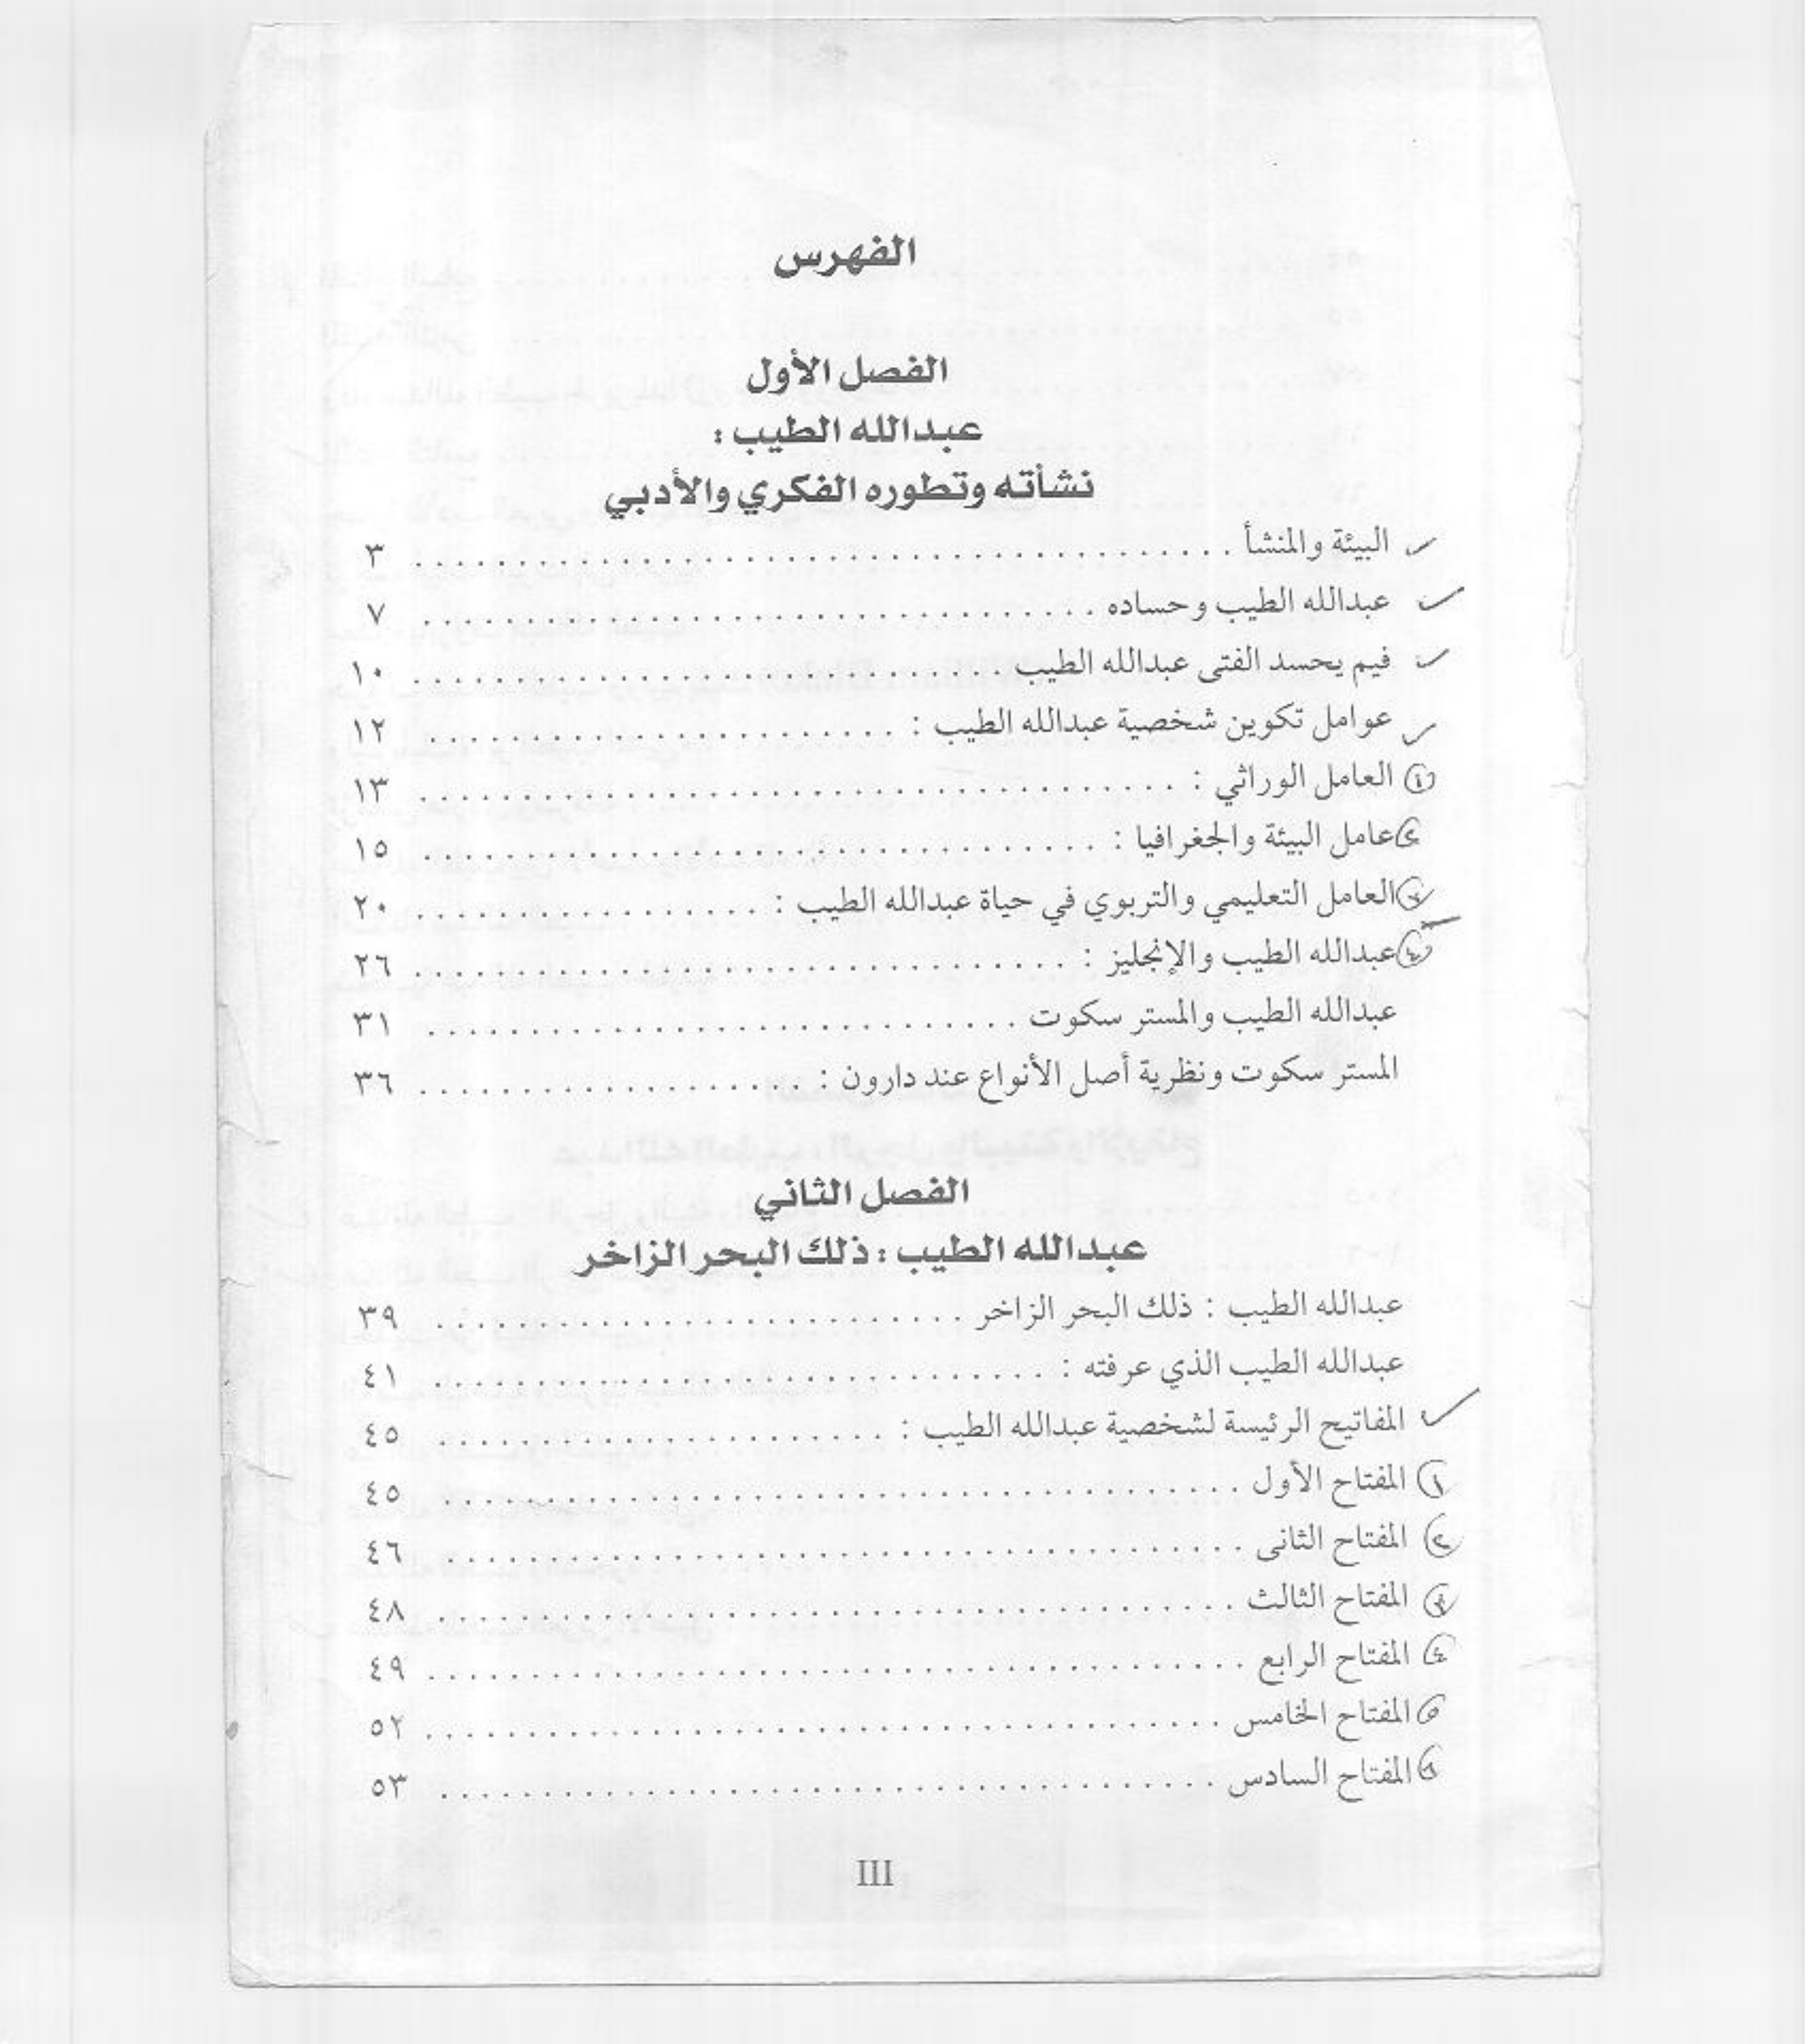 الفهرس
الفصل الأول
عبدالله الطيب :
نشأته وتطوره الفكري والأدبي
البيئة والمنشأ . . . . . . . . . . . . . . . . . . . . ٣
عبدالله الطيب وحساده . . . . . . . . . . . . . . . . . . . . ٧
فيم يحسد الفتى عبدالله الطيب . . . . . . . . . . . . . . . . . . . . ١٠
عوامل تكوين شخصية عبدالله الطيب : . . . . . . . . . . . . . . . . . . . . ١٢
١ العامل الوراثي : . . . . . . . . . . . . . . . . . . . . ١٣
٢ عامل البيئة والجغرافيا : . . . . . . . . . . . . . . . . . . . . ١٥
٣ العامل التعليمي والتربوي في حياة عبدالله الطيب : . . . . . . . . . . . . . . . . . ٢٠
٤ عبدالله الطيب والإنجليز : . . . . . . . . . . . . . . . . . . . . ٢٦
عبدالله الطيب والمستر سكوت . . . . . . . . . . . . . . . . . . . . ٣١
المستر سكوت ونظرية أصل الأنواع عند دارون : . . . . . . . . . . . . . . . . . . . ٣٦
الفصل الثاني
عبدالله الطيب : ذلك البحر الزاخر
عبدالله الطيب : ذلك البحر الزاخر . . . . . . . . . . . . . . . . . . . . ٣٩
عبدالله الطيب الذي عرفته : . . . . . . . . . . . . . . . . . . . . ٤١
المفاتيح الرئيسة لشخصية عبدالله الطيب : . . . . . . . . . . . . . . . . . . . . ٤٥
١ المفتاح الأول . . . . . . . . . . . . . . . . . . . . ٤٥
٢ المفتاح الثانى . . . . . . . . . . . . . . . . . . . . ٤٦
٣ المفتاح الثالث . . . . . . . . . . . . . . . . . . . . ٤٨
٤ المفتاح الرابع . . . . . . . . . . . . . . . . . . . . ٤٩
٥ المفتاح الخامس . . . . . . . . . . . . . . . . . . . . ٥٢
المفتاح السادس . . . . . . . . . . . . . . . . . . . . ٥٣
III